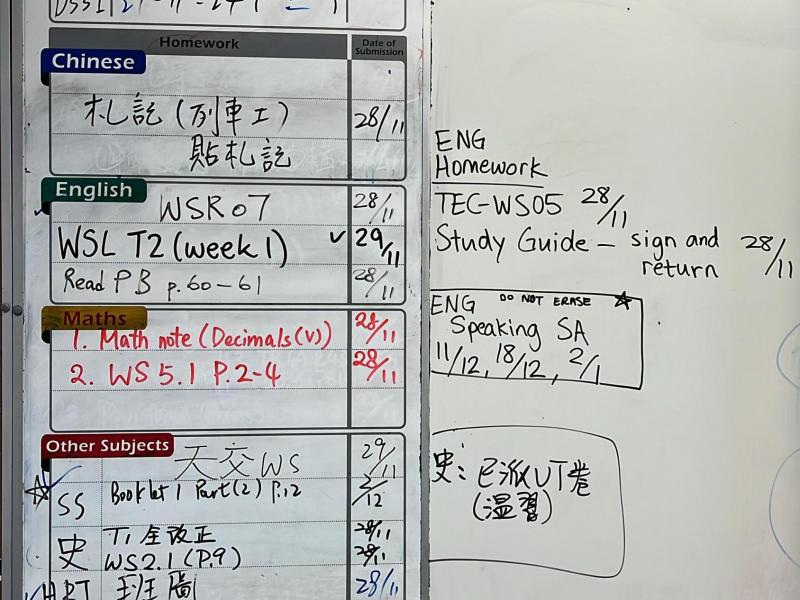 Homework
Date of Submission
Chinese
札記(列車工) 28/11
貼札記
English
WSR 07 28/11
WSL T2 (week 1) ✓ 29/11
Read PB p.60-61 28/11
Maths
1. Math note (Decimals(V)) 28/11
2. WS 5.1 P.2-4 28/11
Other Subjects
天交WS 29/11
☆ SS Booklet 1 Part(2) P.12 2/12
史 T1全改正 28/11
WS2.1 (P.9) 28/11
28/11
ENG
Homework
TEC-WS05 28/11
Study Guide - sign and return 28/11
ENG DO NOT ERASE ☆
Speaking SA
11/12, 18/12, 2/1
史: 已派UT卷
(温習)